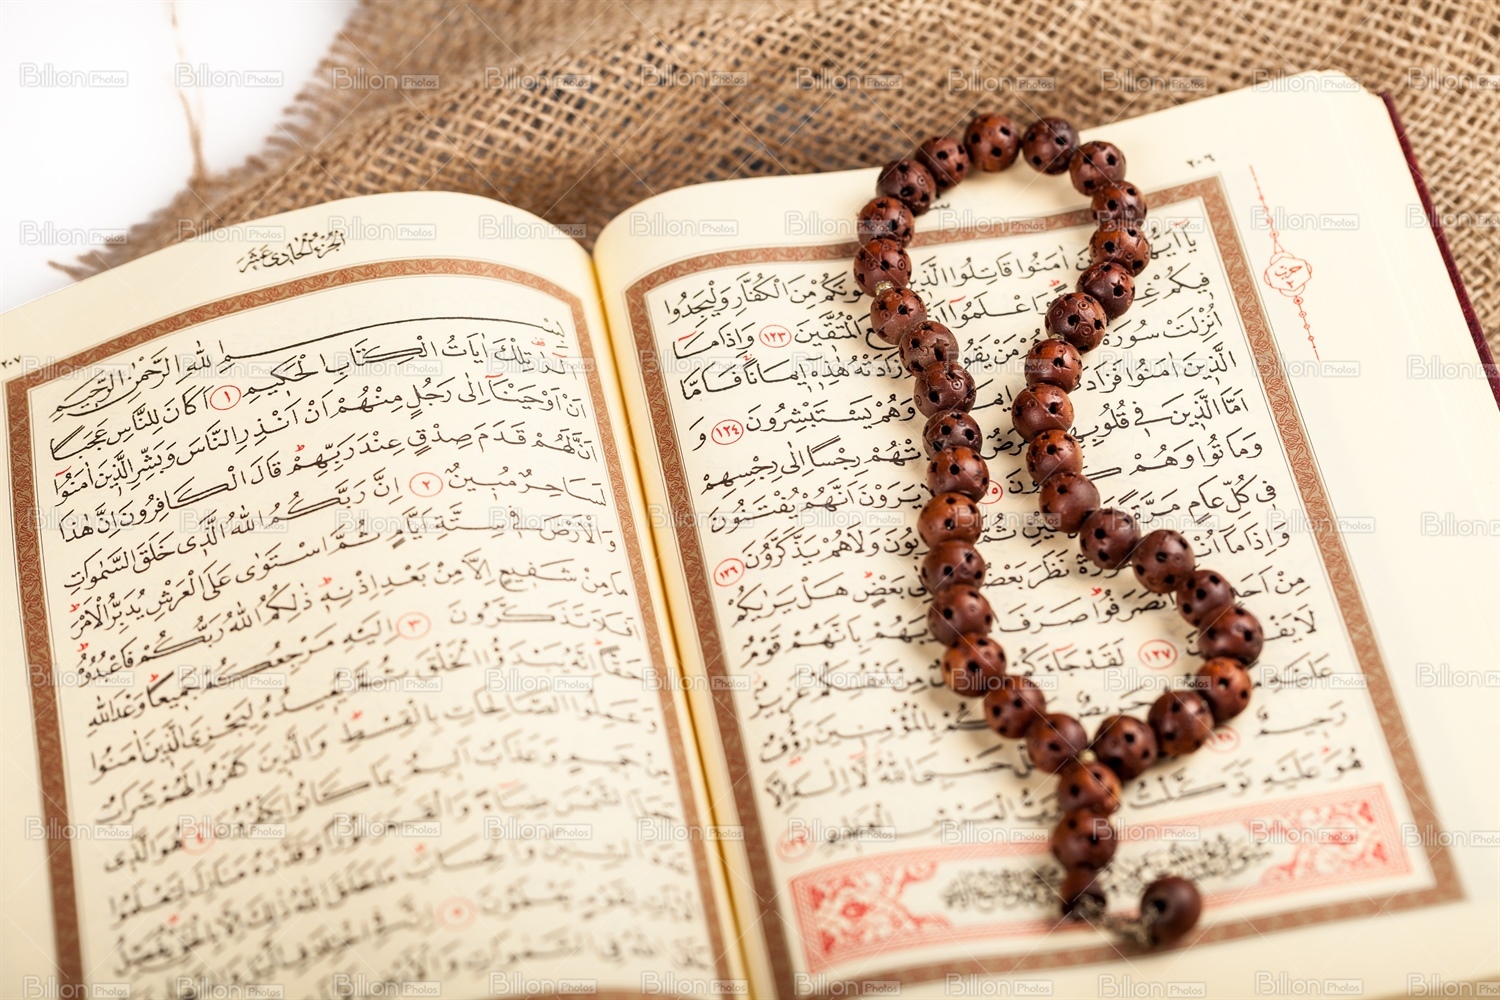 ٢٠٦
يَٓا اَيُّهَا امَنُوا قَاتِلُوا الَّذ ونَكُمْ مِنَ الْكُفَّارِ وَلْيَجِدُوا
فِيكُمْ عْلَمُوا الْمُتَّقِينَ ١٢٣ وَاِذَا مَٓا
اُنْزِلَتْ سُورَة مَنْ يَقُو زَادَتْهُ هٰذِه۪ٓ ا۪يمَانًا فَاَمَّا
الَّذِينَ اٰمَنُوا فَزَاد ا۪يم وَهُمْ يَسْتَبْشِرُونَ ١٢٤ وَ
اَمَّا الَّذِينَ فِى قُلُوبِهِ رَضٌ تْهُمْ رِجْسًا اِلٰى رِجْسِهِمْ
وَمَاتُوا وَهُمْ ونَ يَرَوْنَ اَنَّهُمْ يُفْتَنُونَ
فِى كُلِّ عَامٍ مَرَّةً يْنِ ثُم وبُونَ وَلَا هُمْ يَذَّكَّرُونَ ١٢٦
وَاِذَا مَٓا اُن ورَةٌ نَظَرَ بَعْض ى بَعْضٍ هَلْ يَرٰيكُمْ
مِنْ اَحَد نْصَرَفُوا صَرَفَ بَهُمْ بِاَنَّهُمْ قَوْمٌ
لَا يَفْقَ ١٢٧ لَقَدْ جَٓاءَكُمْ مِنْ اَنْفُسِكُمْ عَزِيزٌ
عَلَيْهِ حَرِيصٌ كُمْ بِالْمُؤْمِنِينَ رَؤُفٌ
رَحِيمٌ حَسْبِيَ اللّٰهُ لَٓا اِلٰهَ اِلَّا
هُوَ عَلَيْهِ تَوَكَّلْتُ الْعَرْشِ الْعَظِيمِ
٢٠٧
الجزء الحادى عشر
بِسْمِ اللّٰهِ الرَّحْمٰنِ الرَّحِيمِ
الٓرٰ تِلْكَ اٰيَاتُ الْكِتَابِ الْحَكِيمِ ١ اَكَانَ لِلنَّاسِ عَجَبًا
اَنْ اَوْحَيْنَٓا اِلٰى رَجُلٍ مِنْهُمْ اَنْ اَنْذِرِ النَّاسَ وَبَشِّرِ الَّذِينَ اٰمَنُٓوا
اَنَّ لَهُمْ قَدَمَ صِدْقٍ عِنْدَ رَبِّهِمْ قَالَ الْكَافِرُونَ اِنَّ هٰذَا
لَسَاحِرٌ مُبِينٌ ٢ اِنَّ رَبَّكُمُ اللّٰهُ الَّذِى خَلَقَ السَّمٰوَاتِ
وَالْاَرْضَ فِى سِتَّةِ اَيَّامٍ ثُمَّ اسْتَوٰى عَلَى الْعَرْشِ يُدَبِّرُ الْاَمْرَ
مَا مِنْ شَفِيعٍ اِلَّا مِنْ بَعْدِ اِذْنِه۪ ذٰلِكُمُ اللّٰهُ رَبُّكُمْ فَاعْبُدُوهُ
اَفَلَا تَذَكَّرُونَ ٣ اِلَيْهِ مَرْجِعُكُمْ جَمِيعًا وَعْدَ اللّٰهِ
حَقًّا اِنَّهُ يَبْدَؤُا الْخَلْقَ ثُمَّ يُعِيدُهُ لِيَجْزِىَ الَّذِينَ اٰمَنُوا
وَعَمِلُوا الصَّالِحَاتِ بِالْقِسْطِ وَالَّذِينَ كَفَرُوا لَهُمْ شَرَابٌ
مِنْ حَمِيمٍ وَعَذَابٌ اَلِيمٌ بِمَا كَانُوا يَكْفُرُونَ ٤ هُوَ الَّذِى
جَعَلَ الشَّمْسَ ضِيَٓاءً وَالْقَمَرَ نُورًا وَقَدَّرَهُ مَنَازِلَ لِتَعْلَمُوا
عَدَدَ السِّنِينَ وَالْحِسَابَ مَا خَلَقَ اللّٰهُ ذٰلِكَ اِلَّا بِالْحَقِّ يُفَصِّلُ
الْاٰيَاتِ لِقَوْمٍ يَعْلَمُونَ ٥ اِنَّ فِى اخْتِلَافِ الَّيْلِ
Billion Photos